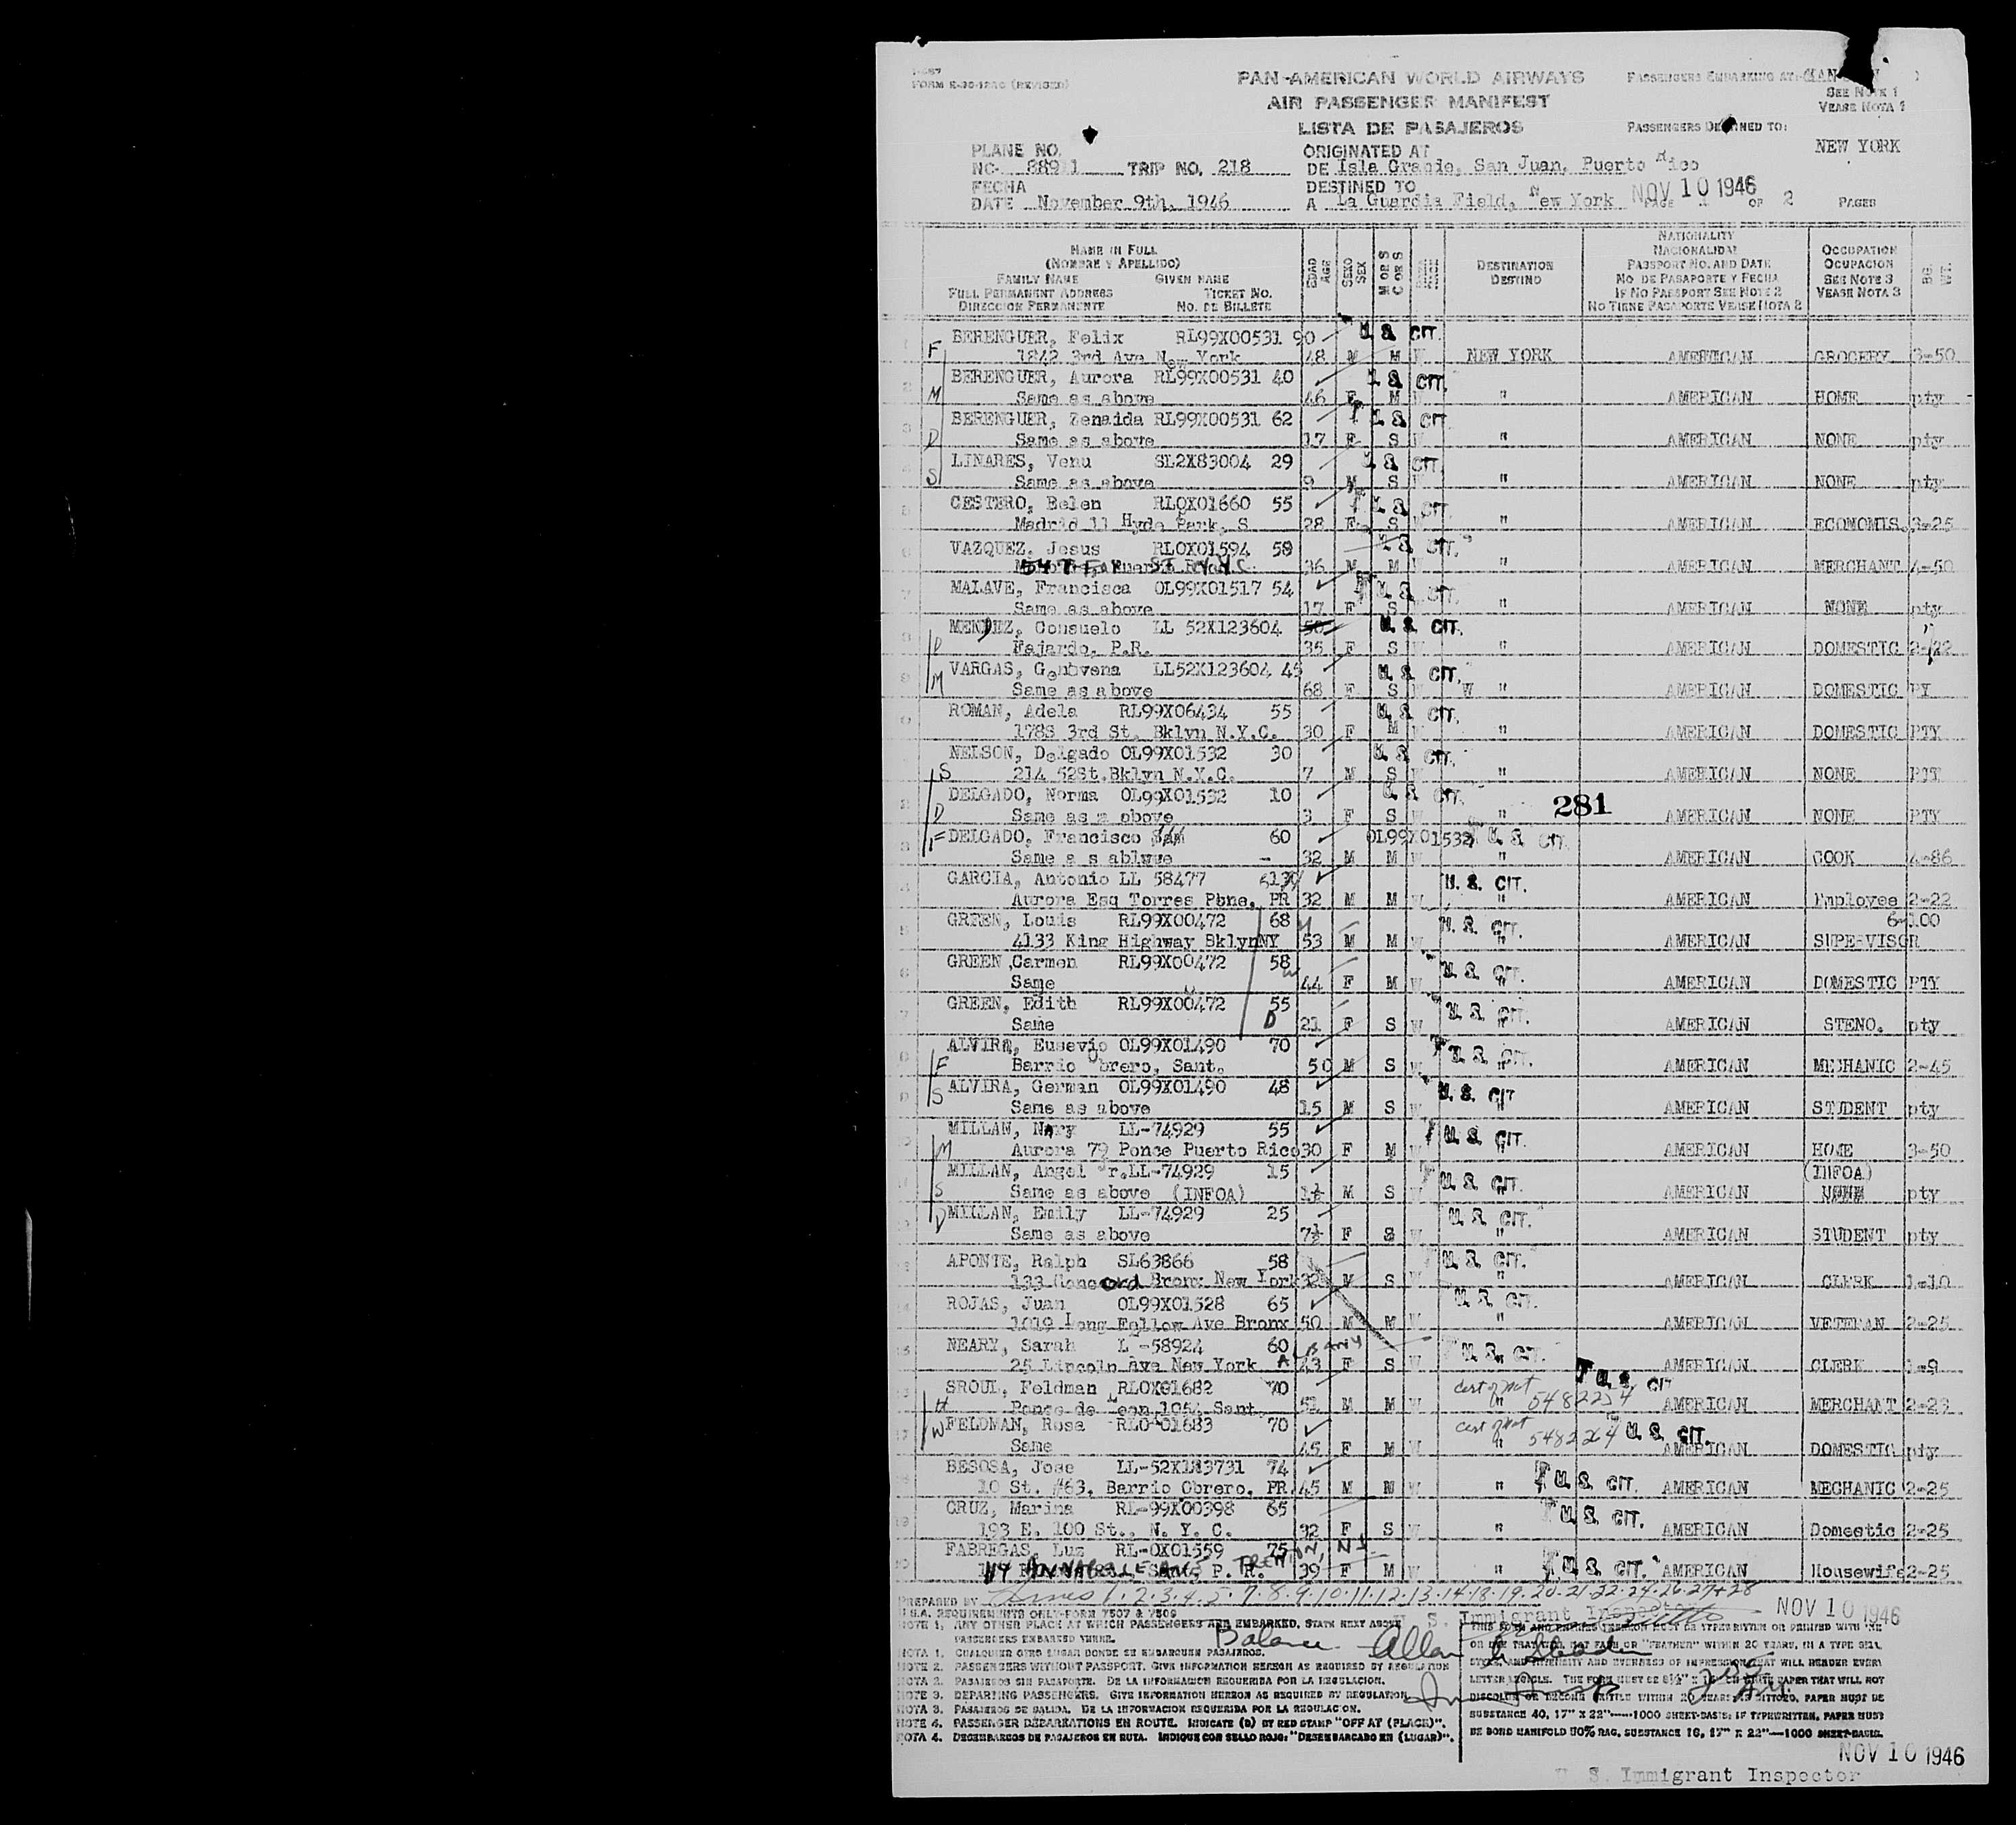 FORM E-30-122C (REVISED)
PAN-AMERICAN WORLD AIRWAYS
AIR PASSENGER MANIFEST
LISTA DE PASAJEROS
PASSENGERS EMBARKING AT:
SEE NOTE 1
VEASE NOTA 1
PASSENGERS DESTINED TO:
NEW YORK
PLANE NO.
NC- 88911 TRIP NO. 218
ORIGINATED AT
DE Isla Grande, San Juan, Puerto Rico
FECHA
DATE November 9th, 1946
DESTINED TO
A La Guardia Field, New York
NOV 10 1946
PAGE 1 OF 2 PAGES
NAME IN FULL
(NOMBRE Y APELLIDO)
FAMILY NAME GIVEN NAME
FULL PERMANENT ADDRESS TICKET NO.
DIRECCION PERMANENTE NO. DE BILLETE
EDAD AGE
SEXO SEX
M OR S
C OR S
DESTINATION
DESTINO
NATIONALITY
NACIONALIDAD
PASSPORT NO. AND DATE
NO DE PASAPORTE Y FECHA
IF NO PASSPORT SEE NOTE 2
NO TIENE PASAPORTE VEASE NOTA 2
OCCUPATION
OCUPACION
SEE NOTE 3
VEASE NOTA 3
BG. WT.
BERENGUER, Felix RL99X00531 90 U.S. CIT.
F 1842 3rd Ave New York 48 M M W NEW YORK AMERICAN GROCERY 3-50
BERENGUER, Aurora RL99X00531 40 U.S. CIT.
M Same as above 46 F M W " AMERICAN HOME pty
BERENGUER, Zenaida RL99X00531 62 U.S. CIT
D Same as above 17 F S W " AMERICAN NONE pty
LINARES, Venu SL2X83004 29 U.S. CIT.
S Same as above 9 M S W " AMERICAN NONE pty
CESTERO, Belen RLOX01660 55 U.S. CIT.
Madrid 11 Hyde Park, S 28 F S W " AMERICAN ECONOMIS. 3-25
VAZQUEZ, Jesus RLOX01594 58 U.S. CIT.
547 Fox ST N.Y.C. 36 M M W " AMERICAN MERCHANT 4-50
MALAVE, Francisca OL99X01517 54 U.S. CIT.
Same as above 17 F S W " AMERICAN NONE pty
MENDEZ, Consuelo LL 52X123604 50 U.S. CIT.
D Fajardo, P.R. 35 F S W " AMERICAN DOMESTIC 2-22
VARGAS, Genovena LL52X123604 45 U.S. CIT.
M Same as above 68 F S W " AMERICAN DOMESTIC PY
ROMAN, Adela RL99X06434 55 U.S. CIT.
178S 3rd St. Bklyn N.Y.C. 30 F M W " AMERICAN DOMESTIC PTY
NELSON, Delgado OL99X01532 30 U.S. CIT.
S 214 52St. Bklyn N.Y.C. 7 M S W " AMERICAN NONE PTY
DELGADO, Norma OL99X01532 10 U.S. CIT. 281
D Same as m above 3 F S W " AMERICAN NONE PTY
F DELGADO, Francisco 60 OL99X01532 U.S. CIT
Same a s ablwve - 32 M M W " AMERICAN COOK 4-86
GARCIA, Antonio LL 58477 U.S. CIT.
Aurora Esq Torres Pbne. PR 32 M M W " AMERICAN Employee 2-22
GREEN, Louis RL99X00472 68 U.S. CIT. 6-100
4133 King Highway BklynNY 53 M M W " AMERICAN SUPERVISOR
GREEN ,Carmen RL99X00472 58 U.S. CIT.
Same 44 F M W " AMERICAN DOMESTIC PTY
GREEN, Edith RL99X00472 55 U.S. CIT.
Same D 21 F S W " AMERICAN STENO. pty
ALVIRA, Eusevio OL99X01490 70 U.S. CIT.
F Barrio Obrero, Sant. 50 M S W " AMERICAN MECHANIC 2-45
ALVIRA, German OL99X01490 48 U.S. CIT
S Same as above 15 M S W " AMERICAN STUDENT pty
MILLAN, Nary LL-74929 55 U.S. CIT.
M Aurora 79 Ponce Puerto Rico 30 F M W " AMERICAN HOME 3-50
MILLAN, Angel Jr. LL-74929 15 U.S. CIT. (INFOA)
S Same as above (INFOA) 1½ M S W " AMERICAN NONE pty
MILLAN, Emily LL-74929 25 U.S. CIT.
D Same as above 7½ F S W " AMERICAN STUDENT pty
APONTE, Ralph SL63866 58 U.S. CIT.
133 Concord Bronx New York 32 M S W " AMERICAN CLERK 1-10
ROJAS, Juan OL99X01528 65 U.S. CIT.
1019 Long Fellow Ave Bronx 50 M M W " AMERICAN VETERAN 2-25
NEARY, Sarah L -58924 60 U.S. CIT.
25 Lincoln Ave New York ALBANY 43 F S W AMERICAN CLERK 1-9
SROUL, Feldman RLOX01682 70 Cert of Nat U.S. CIT
H Ponce de Leon 1054 Sant. 51 M M W " 5482254 AMERICAN MERCHANT 2-23
FELDMAN, Rosa RLO-01683 70 Cert of Nat U.S. CIT.
W Same 45 F M W " 5482264 AMERICAN DOMESTIC pty
BESOSA, Jose LL-52X183731 74 U.S. CIT.
10 St. #63, Barrio Obrero, PR. 45 M M W " AMERICAN MECHANIC 2-25
CRUZ, Marina RL-99X00398 65 U.S. CIT.
193 E. 100 St., N. Y. C. 32 F S W " AMERICAN Domestic 2-25
FABREGAS, Luz RL-0X01559 75 U.S. CIT.
114 ANNABELLE AVE TRENTON, N.J. 39 F M W " AMERICAN Housewife 2-25
PREPARED BY Lines 1.2.3.4.5.7.8.9.10.11.12.13.14.18.19.20.21.22.24.26.27+28
U.S.A. REQUIREMENTS ONLY-FORM 7507 & 7509
U. S. Immigrant Inspector NOV 10 1946
NOTE 1. ANY OTHER PLACE AT WHICH PASSENGERS ARE EMBARKED, STATE NEXT ABOVE
PASSENGERS EMBARKED THERE.
Balance
NOTA 1. CUALQUIER OTRO LUGAR DONDE SE EMBARQUEN PASAJEROS.
NOTE 2. PASSENGERS WITHOUT PASSPORT. GIVE INFORMATION HEREON AS REQUIRED BY REGULATION
NOTA 2. PASAJEROS SIN PASAPORTE. DE LA INFORMACION REQUERIDA POR LA REGULACION.
NOTE 3. DEPARTING PASSENGERS. GIVE INFORMATION HEREON AS REQUIRED BY REGULATION
NOTA 3. PASAJEROS DE SALIDA. DE LA INFORMACION REQUERIDA POR LA REGULACION.
NOTE 4. PASSENGER DEBARKATIONS EN ROUTE. INDICATE (D) BY RED STAMP "OFF AT (PLACE)".
NOTA 4. DESEMBARCOS DE PASAJEROS EN RUTA. INDIQUE CON SELLO ROJO: "DESEMBARCADO EN (LUGAR)".
THIS FORM AND ENTRIES THEREON MUST BE TYPEWRITTEN OR PRINTED WITH INK
OR DYE THAT WILL NOT FADE OR "FEATHER" WITHIN 20 YEARS, IN A TYPE SIZE,
STYLE, AND INTENSITY AND EVENNESS OF IMPRESSION THAT WILL RENDER EVERY
LETTER LEGIBLE. THE FORM MUST BE 8½" X ON WHITE PAPER THAT WILL NOT
DISCOLOR OR BECOME BRITTLE WITHIN 20 YEARS. IF DITTOED, PAPER MUST BE
SUBSTANCE 40, 17" X 22"—1000 SHEET-BASIS; IF TYPEWRITTEN, PAPER MUST
BE BOND MANIFOLD 50% RAG, SUBSTANCE 16, 17" X 22"—1000 SHEET-BASIS.
NOV 10 1946
U. S. Immigrant Inspector